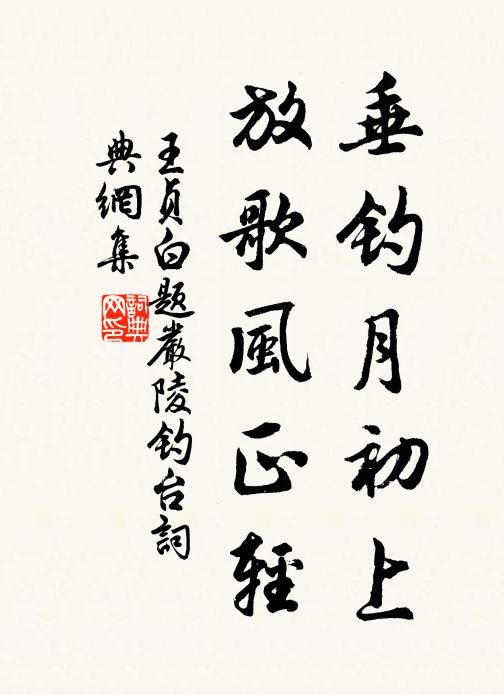 垂钓月初上
放歌風正輕
王貞白題嚴陵钓台詞
典網集
詞典网印